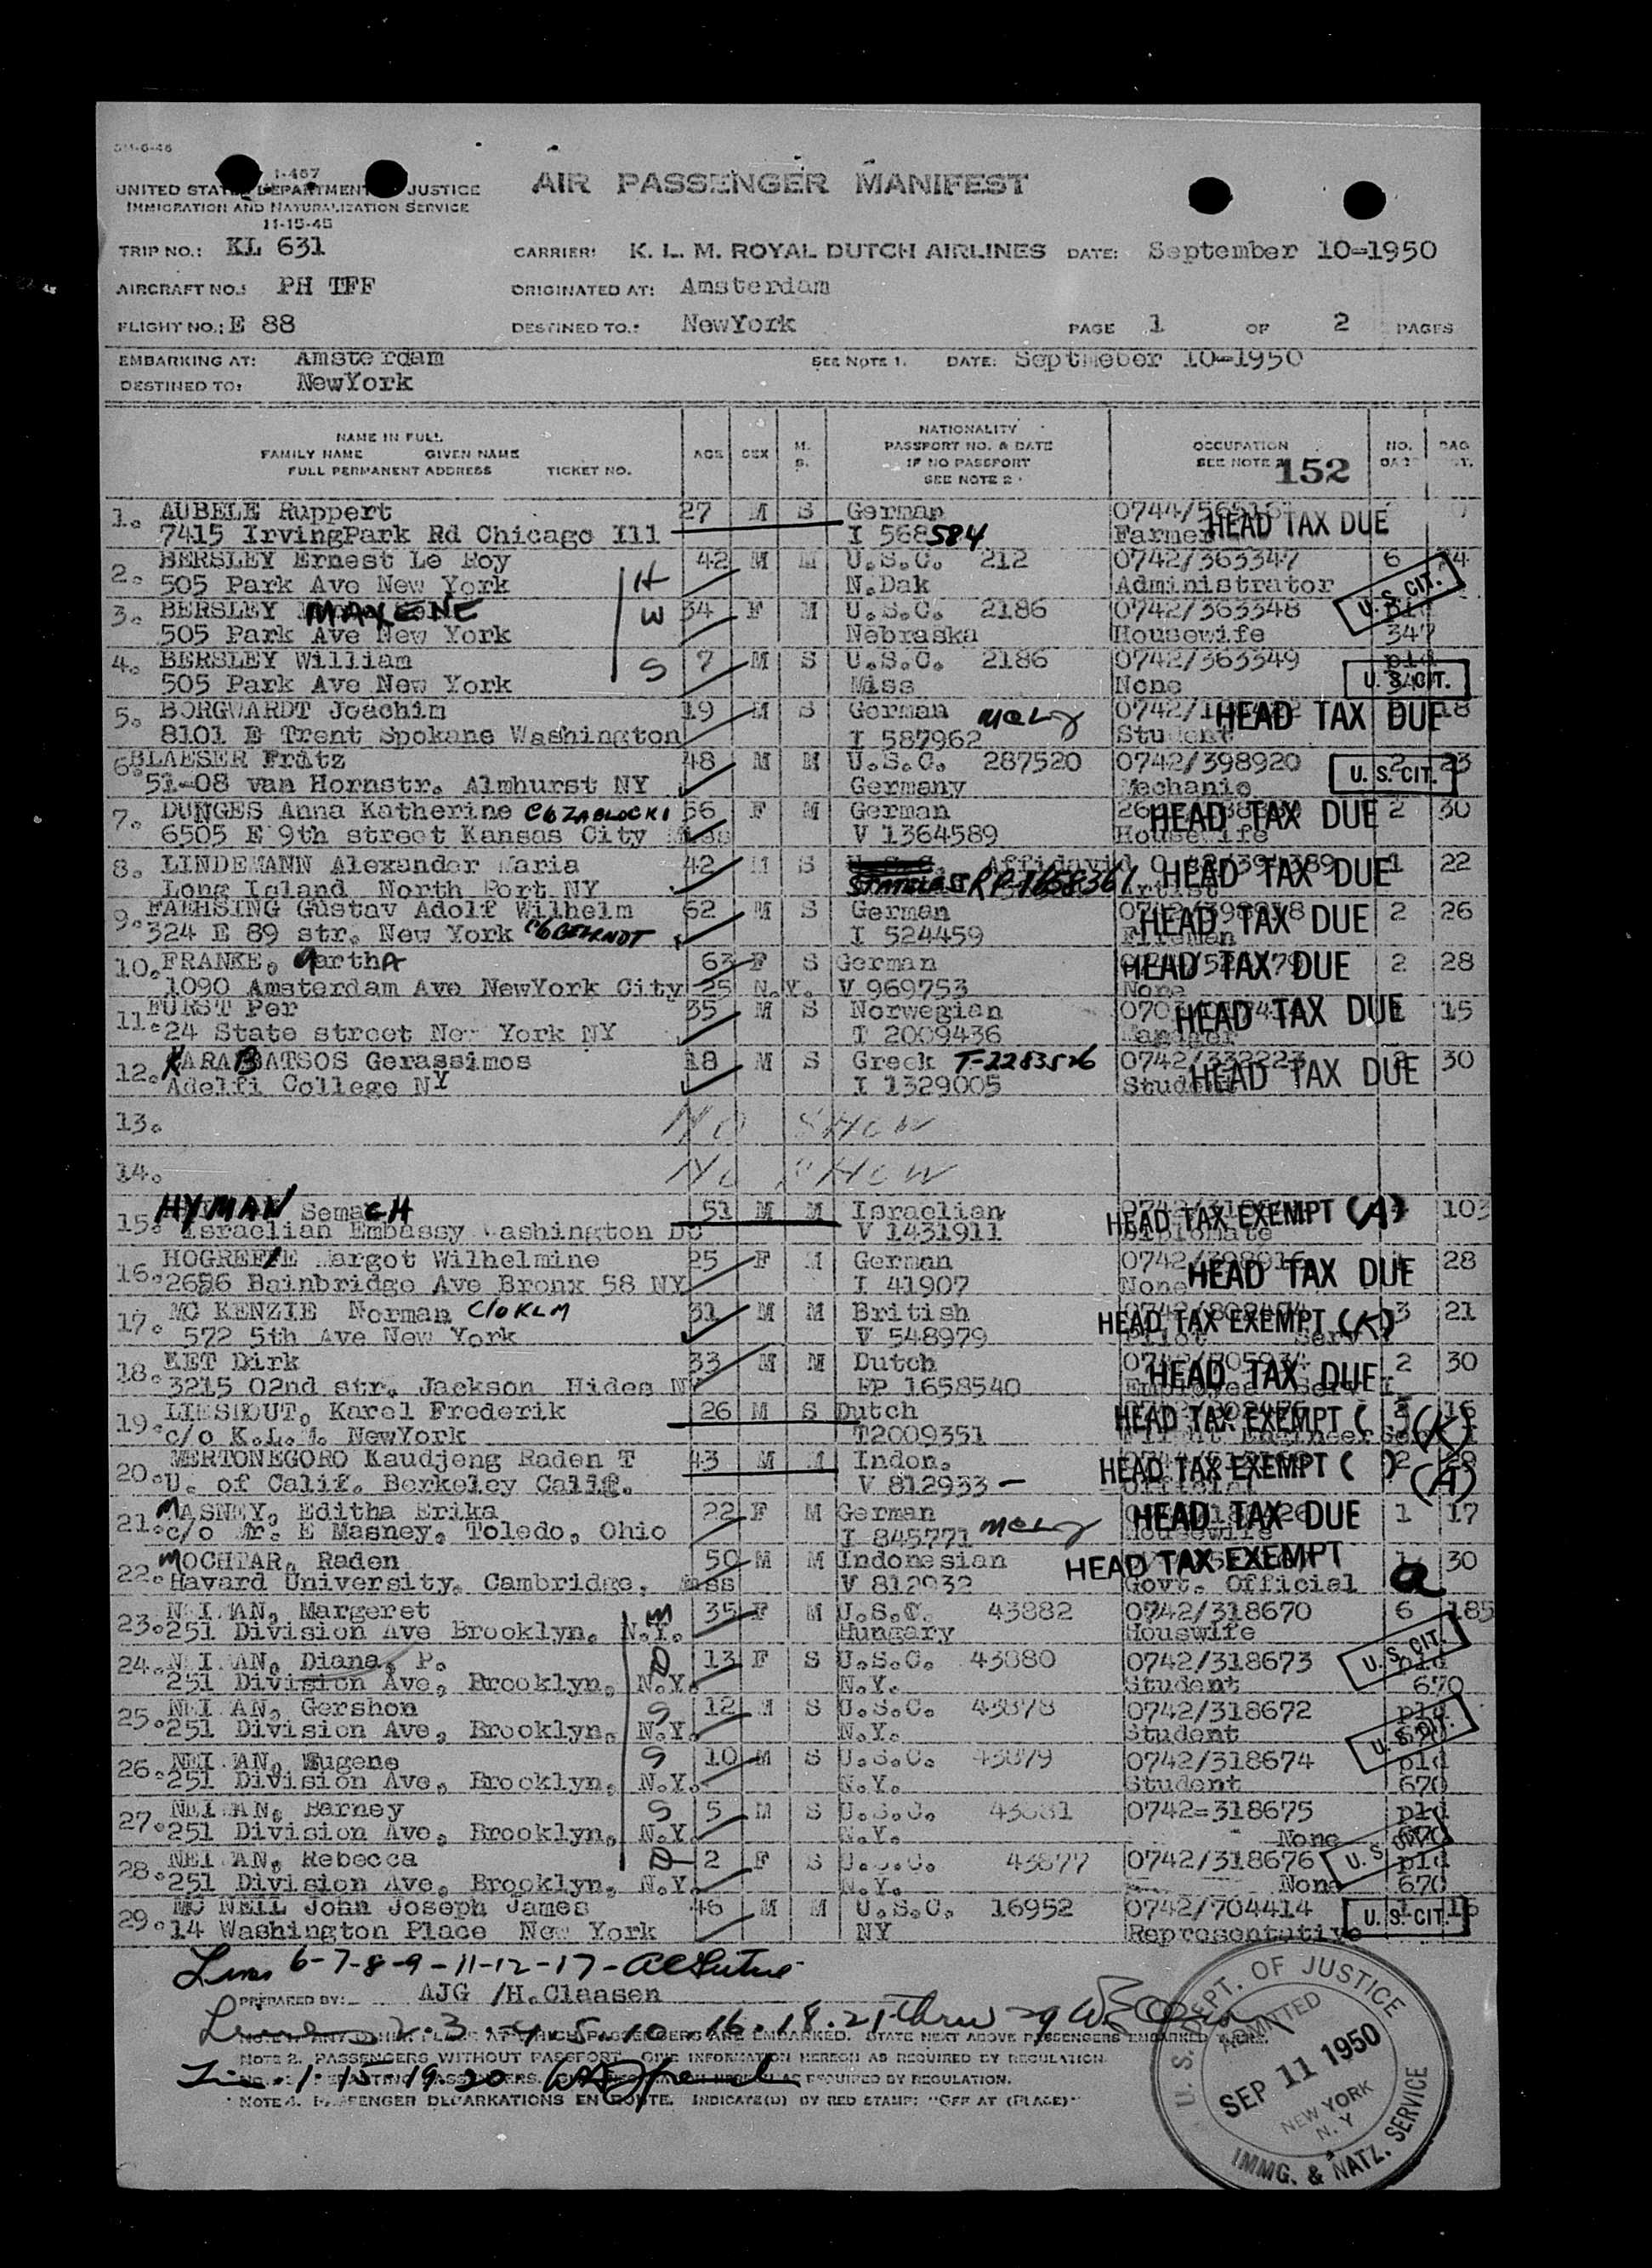 I-467
UNITED STATES DEPARTMENT OF JUSTICE
IMMIGRATION AND NATURALIZATION SERVICE
11-15-45
AIR PASSENGER MANIFEST
TRIP NO.: KL 631 CARRIER: K. L. M. ROYAL DUTCH AIRLINES DATE: September 10-1950
AIRCRAFT NO.: PH TFF ORIGINATED AT: Amsterdam
FLIGHT NO.: E 88 DESTINED TO.: NewYork PAGE 1 OF 2 PAGES
EMBARKING AT: Amsterdam SEE NOTE 1. DATE: Septmeber 10-1950
DESTINED TO: NewYork
NAME IN FULL
FAMILY NAME GIVEN NAME
FULL PERMANENT ADDRESS TICKET NO.
AGE SEX M. S.
NATIONALITY
PASSPORT NO. & DATE
IF NO PASSPORT
SEE NOTE 2
OCCUPATION
SEE NOTE 2 152
NO. BAG
1. AUBELE Ruppert 27 M S German
7415 IrvingPark Rd Chicago Ill I 568584 Farmer HEAD TAX DUE
2. BERSLEY Ernest Le Roy H 42 M M U.S.C. 212 0742/363347 6 74
505 Park Ave New York N.Dak Administrator U. S. CIT.
3. BERSLEY MAXENE W 34 F M U.S.C. 2186 0742/363348 pld
505 Park Ave New York Nebraska Housewife 347
4. BERSLEY William S 7 M S U.S.C. 2186 0742/363349 pld
505 Park Ave New York Miss None U. S. CIT.
5. BORGWARDT Joachim 19 M S German HEAD TAX DUE 18
8101 E Trent Spokane Washington I 587962 Student
6. BLAESER Fratz 48 M M U.S.C. 287520 0742/398920 2 23
51-08 van Hornstr. Almhurst NY Germany Mechanic U. S. CIT.
7. DUNGES Anna Katherine C/o ZABLOCKI 56 F M German HEAD TAX DUE 2 30
6505 E 9th street Kansas City Miss V 1364589 Housewife
8. LINDEMANN Alexander Maria 42 M S Affidavid HEAD TAX DUE 1 22
Long Island North Port NY STATELESS RP 1658361
9. FAEHSING Gustav Adolf Wilhelm 62 M S German HEAD TAX DUE 2 26
324 E 89 str. New York I 524459 Fireman
10. FRANKE, MarthA 63 F S German HEAD TAX DUE 2 28
1090 Amsterdam Ave NewYork City 25 N.Y. V 969753 None
11. FURST Per 35 M S Norwegian HEAD TAX DUE 15
24 State street New York NY T 2009436
12. KARABATSOS Gerassimos 18 M S Greek T-2283526 0742/332223 30
Adelfi College NY I 1329005 Student HEAD TAX DUE
13. NO SHOW
14. NO SHOW
15. HYMAN SemaCH 51 M M Israelian HEAD TAX EXEMPT (A) 103
Israelian Embassy Washington DC V 1431911 Diplomate
16. HOGREFE Margot Wilhelmine 25 F M German HEAD TAX DUE 28
2656 Bainbridge Ave Bronx 58 NY I 41907 None
17. MC KENZIE Norman C/O KLM 31 M M British HEAD TAX EXEMPT (K) 3 21
572 5th Ave New York V 548979
18. KET Dirk 33 M M Dutch HEAD TAX DUE 2 30
3215 02nd str. Jackson Hides NY EP 1658540
19. LIESHOUT, Karel Frederik 26 M S Dutch HEAD TAX EXEMPT ( ) (K)
c/o K.L.M. NewYork T2009351
20. MERTONEGORO Kaudjeng Raden T 43 M M Indon. HEAD TAX EXEMPT ( ) (A) 2
U. of Calif. Berkeley Calif. V 812933 Official
21. MASNEY, Editha Erika 22 F M German HEAD TAX DUE 1 17
c/o Mr. E Masney, Toledo, Ohio I 845771 Housewife
22. MOCHTAR, Raden 50 M M Indonesian HEAD TAX EXEMPT 1 30
Havard University, Cambridge, Mass V 812932 Govt. Official a
23. NEIMAN, Margeret m 35 F M U.S.C. 43882 0742/318670 6 185
251 Division Ave Brooklyn, N.Y. Hungary Houswife U. S. CIT.
24. NEIMAN, Diana, P. D 13 F S U.S.C. 43880 0742/318673 pld
251 Division Ave, Brooklyn, N.Y. N.Y. Student 670
25. NEIMAN, Gershon S 12 M S U.S.C. 43878 0742/318672 pld
251 Division Ave, Brooklyn, N.Y. N.Y. Student U. S. CIT.
26. NEIMAN, Eugene S 10 M S U.S.C. 43879 0742/318674 pld
251 Division Ave, Brooklyn, N.Y. N.Y. Student 670
27. NEIMAN, Barney S 5 M S U.S.C. 43881 0742=318675 pld
251 Division Ave, Brooklyn, N.Y. N.Y. None 670
28. NEIMAN, Rebecca D 2 F S U.S.C. 43877 0742/318676 pld
251 Division Ave, Brooklyn, N.Y. N.Y. None 670 U. S. CIT.
29. MC NEIL John Joseph James 46 M M U.S.C. 16952 0742/704414 1 16
14 Washington Place New York NY Representative U. S. CIT.
Lines 6-7-8-9-11-12-17-
PREPARED BY: AJG /H.Claasen
Lines 2.3.4.5.10.16.18.21 thru 29
NOTE 2. PASSENGERS WITHOUT PASSPORT, GIVE INFORMATION HEREON AS REQUIRED BY REGULATION.
Lines 1. 15 19 20
NOTE 4. PASSENGER DEPARKATIONS EN ROUTE. INDICATE(D) BY RED STAMP: "OFF AT (PLACE)"
U. S. DEPT. OF JUSTICE
ADMITTED
SEP 11 1950
NEW YORK
N. Y
IMMG. & NATZ. SERVICE